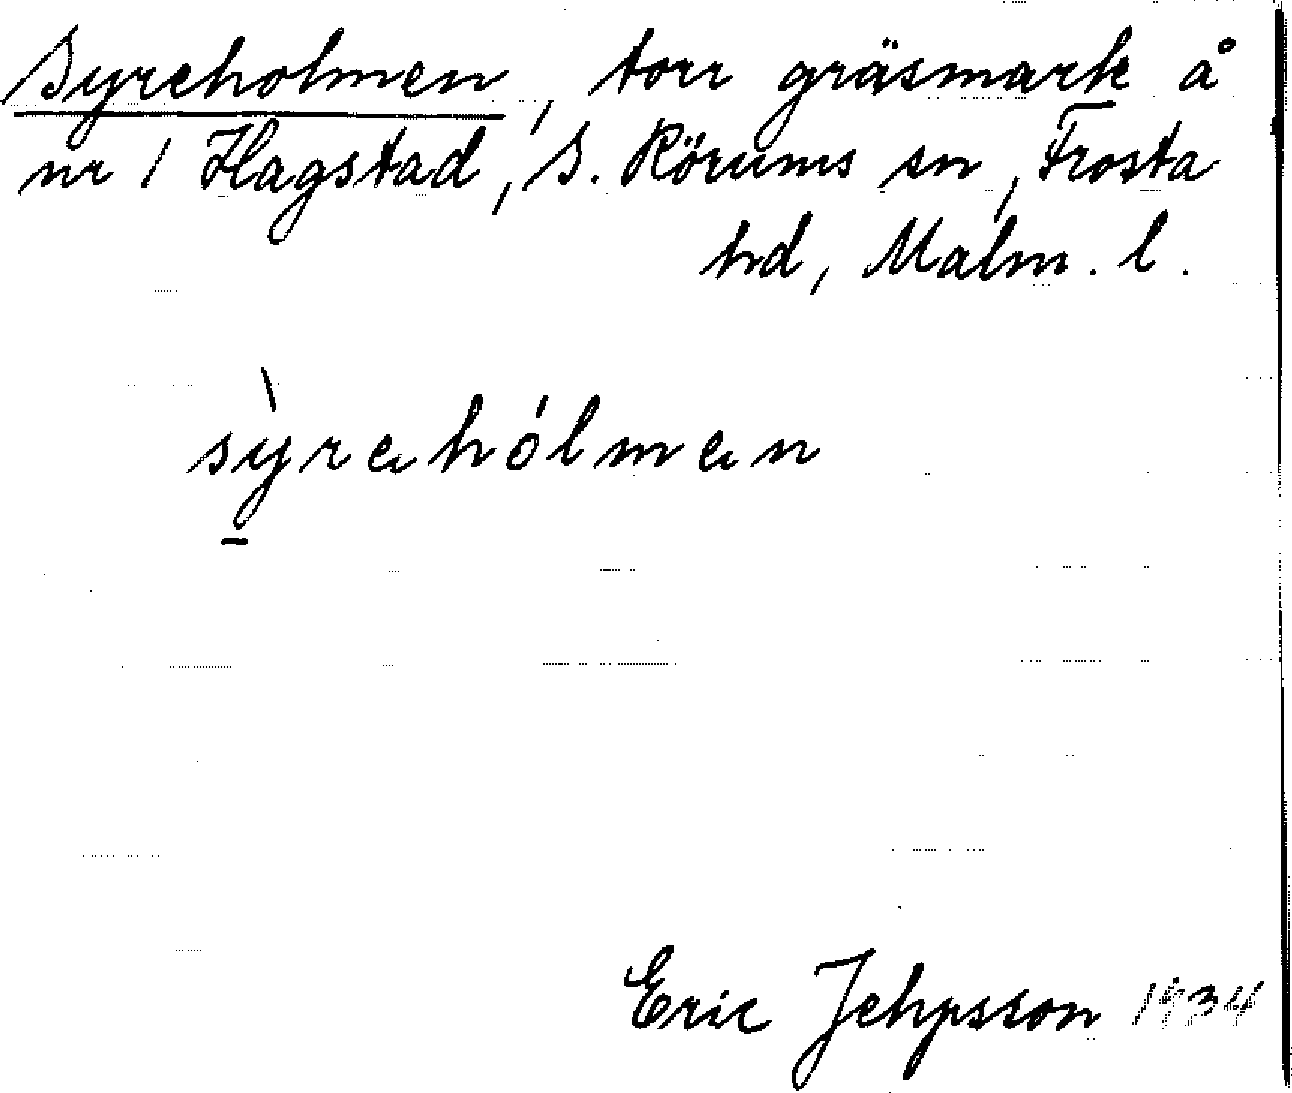 Syreholmen, torr gräsmark å
nr 1 Hagstad, S. Rörums sn, Frosta
hd, Malm. l.
sỳrehólmen
Eric Jehpsson 1934